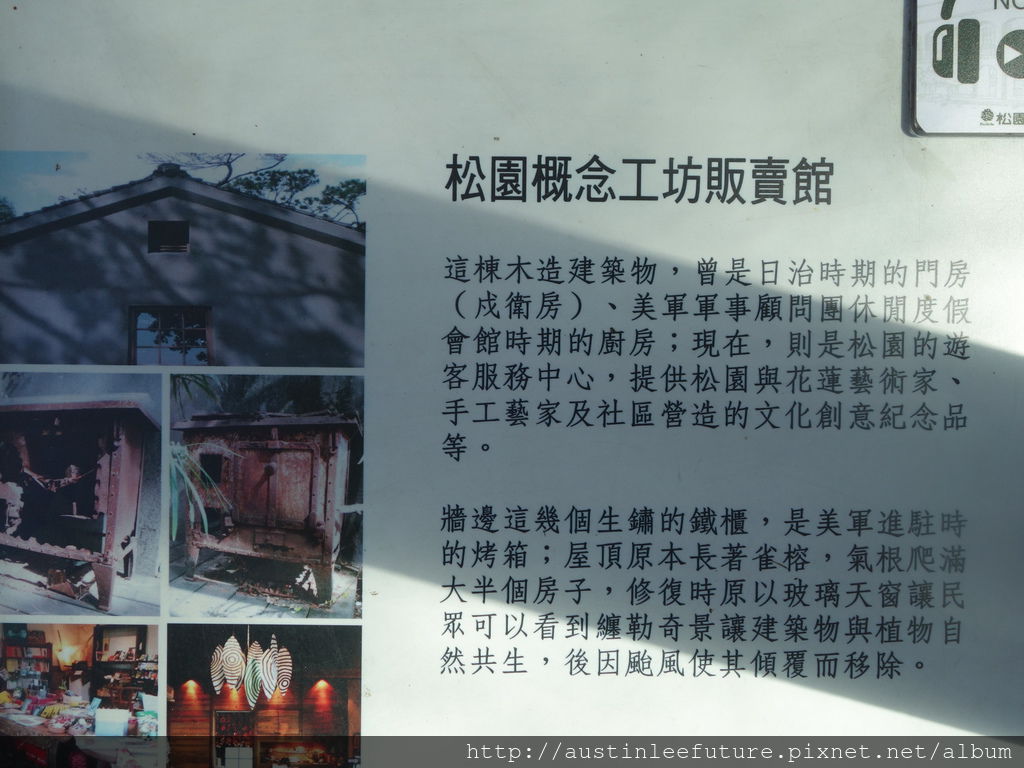 NO
松園
松園概念工坊販賣館
這棟木造建築物，曾是日治時期的門房
（戍衛房）、美軍軍事顧問團休閒度假
會館時期的廚房；現在，則是松園的遊
客服務中心，提供松園與花蓮藝術家、
手工藝家及社區營造的文化創意紀念品
等。
牆邊這幾個生鏽的鐵櫃，是美軍進駐時
的烤箱；屋頂原本長著雀榕，氣根爬滿
大半個房子，修復時原以玻璃天窗讓民
眾可以看到纏勒奇景讓建築物與植物自
然共生，後因颱風使其傾覆而移除。
http://austinleefuture.pixnet.net/album